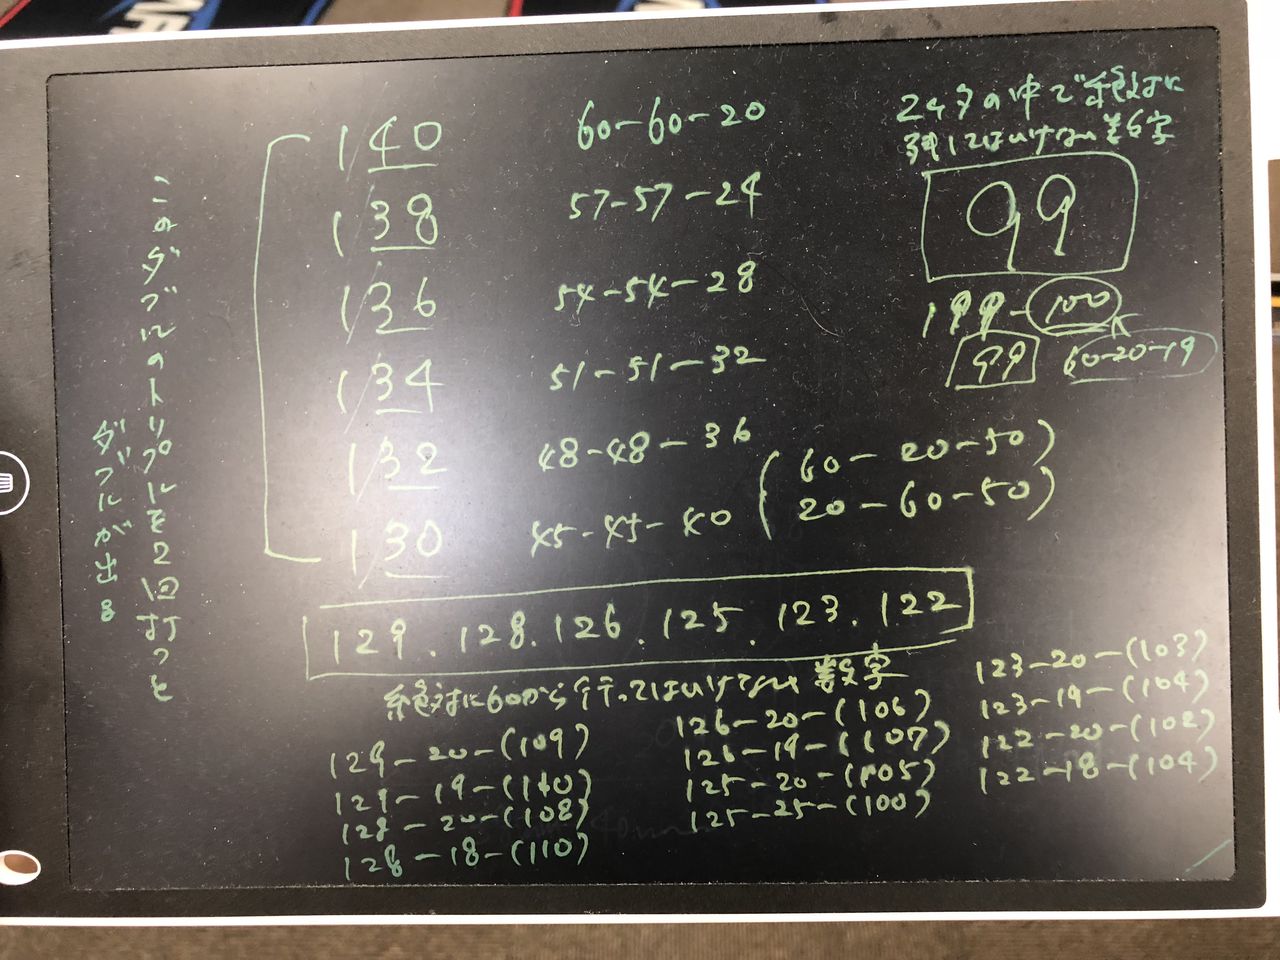 このダブルのトリプルを2回打つと
ダブルが出る
1/40 60-60-20
1/38 57-57-24
1/36 54-54-28
1/34 51-51-32
1/32 48-48-36
1/30 45-45-40
(60-20-50)
(20-60-50)
の中で絶対に
してはいけない数字
99
199-100
99 60-20-19
129.128.126.125.123.122
絶対に60から行ってはいけない数字
129-20-(109)
129-19-(110)
128-20-(108)
128-18-(110)
126-20-(106)
126-19-(107)
125-20-(105)
125-25-(100)
123-20-(103)
123-19-(104)
122-20-(102)
122-18-(104)